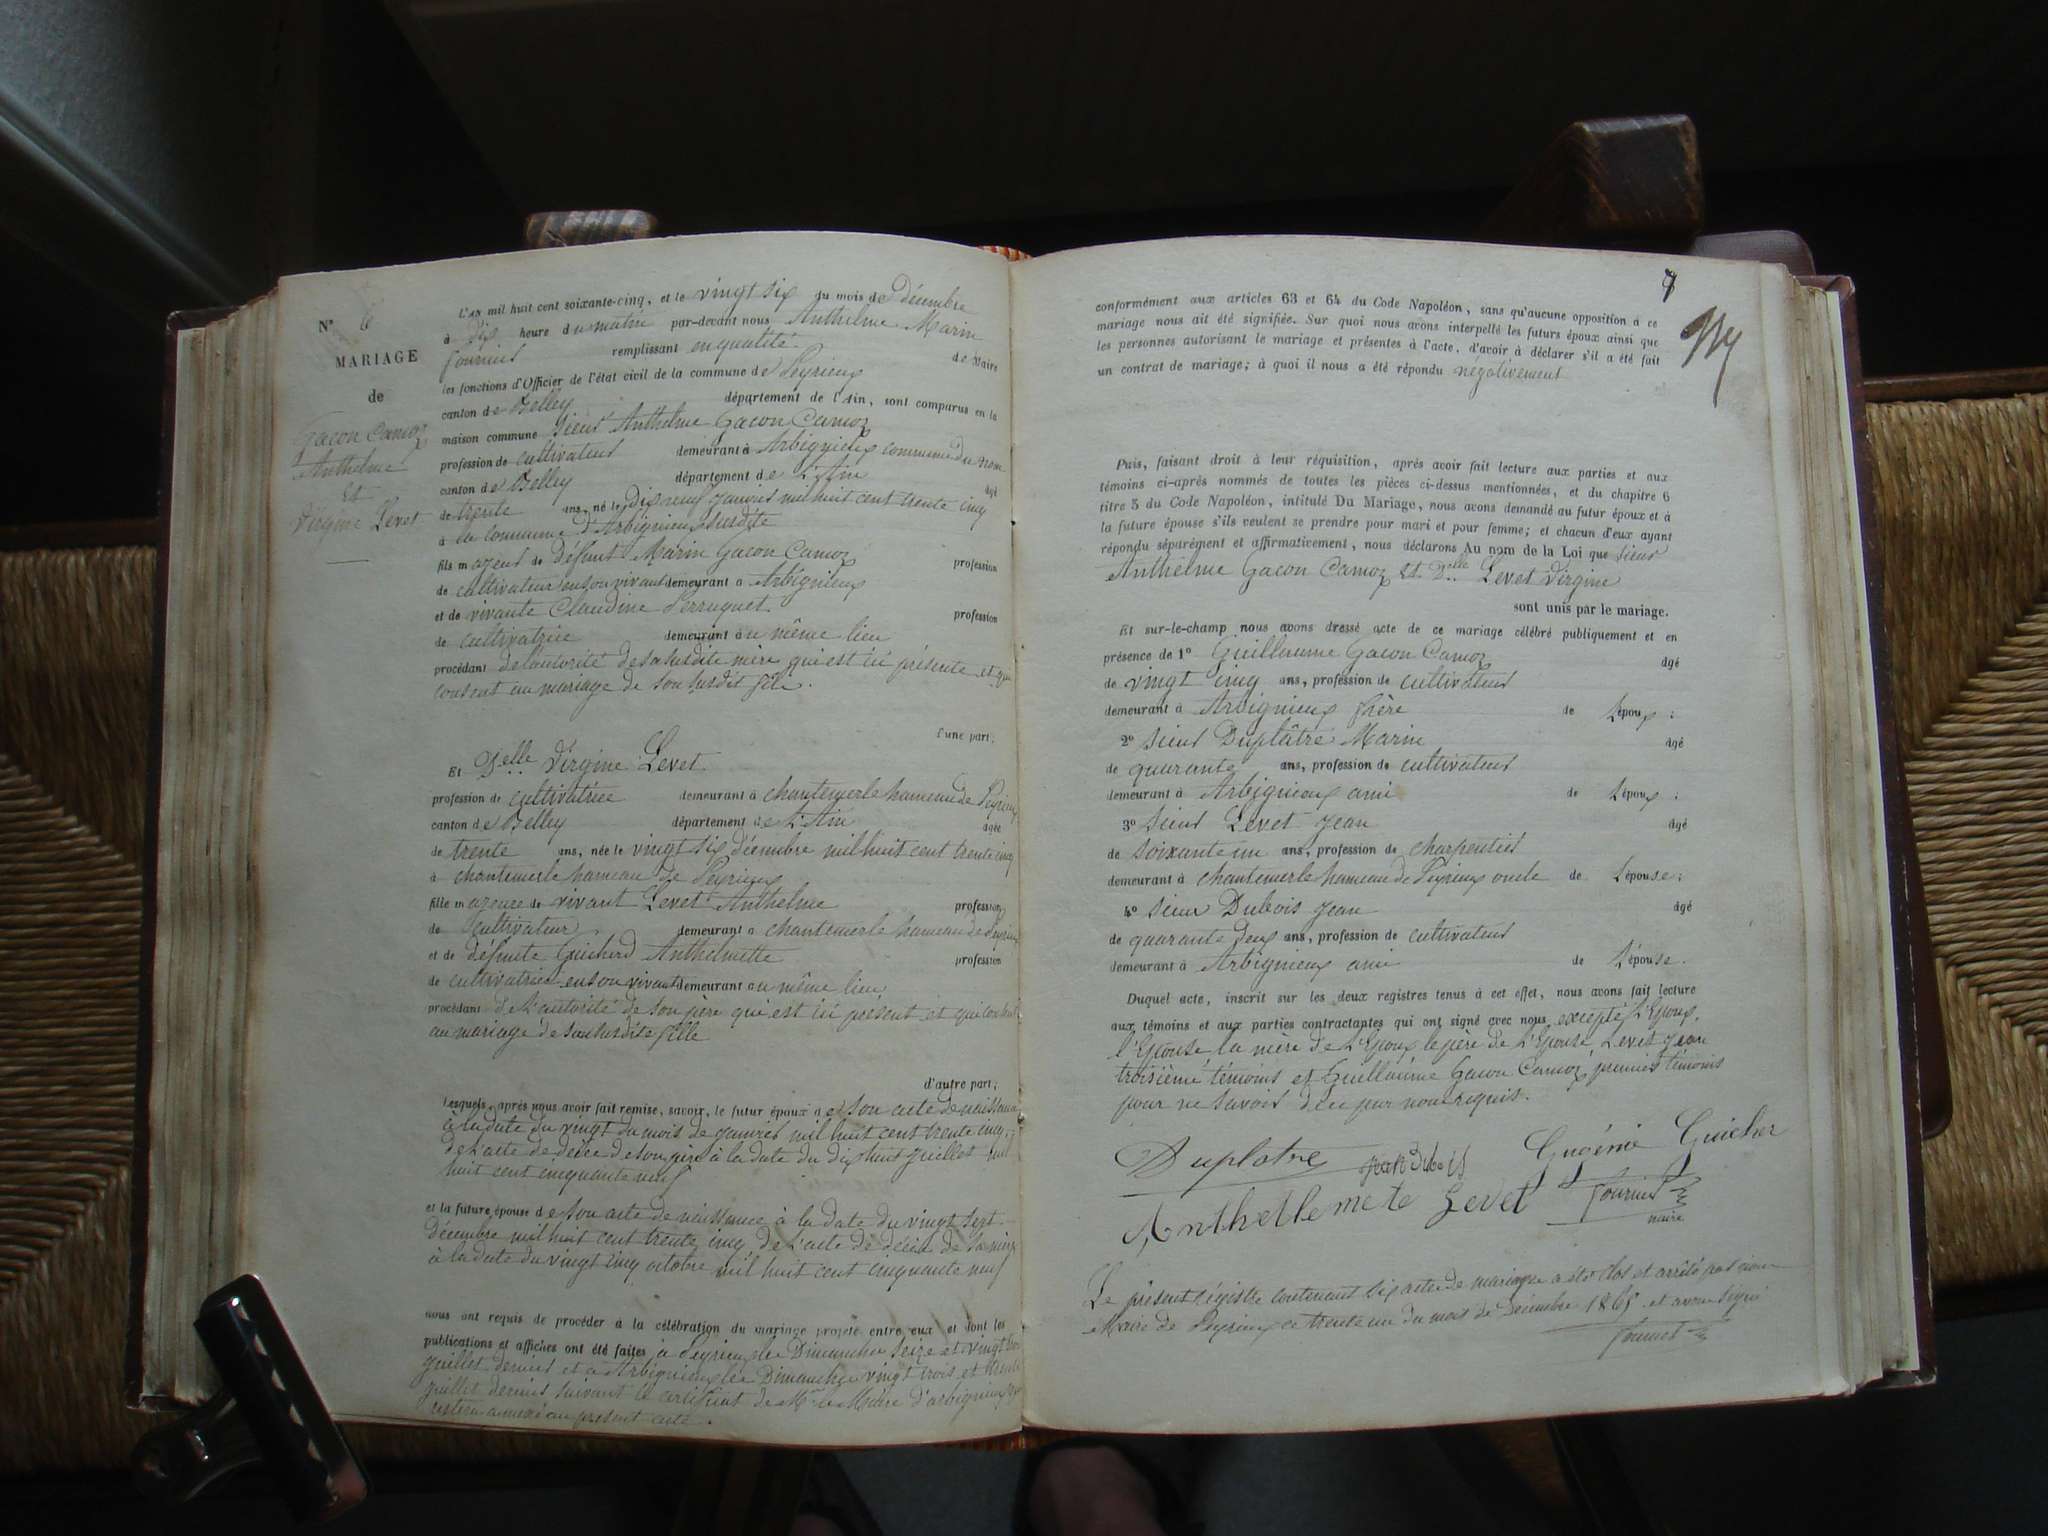 N° 6
MARIAGE
de
Gacon Camoz
Anthelme
Et
Virgine Levet
L'an mil huit cent soixante-cinq, et le vingt six du mois de Décembre
à dix heure du matin par-devant nous Anthelme Marin
fournier remplissant en qualité de Maire
les fonctions d'Officier de l'état civil de la commune de Peyrieux
canton de Belley département de l'Ain, sont comparus en la
maison commune Sieur Anthelme Gacon Camoz
profession de cultivateur demeurant à Arbignieux commune du nom
canton de Belley département de L'Ain âgé
de trente ans, né le dix neuf Janvier mil huit cent trente cinq
à la commune d'Arbignieux susdite
fils mageur de défunt Marin Gacon Camoz profession
de cultivateur en son vivant demeurant à Arbignieux
et de vivante Claudine Perruquet profession
de cultivatrice demeurant au même lieu
procédant de l'autorité de sa susdite mère qui est ici présente et qui
consent au mariage de son susdit fils.
d'une part;
Et Delle Virgine Levet
profession de cultivatrice demeurant à chantemerle hameau de Peyrieux
canton de Belley département de L'Ain âgée
de trente ans, née le vingt six décembre mil huit cent trente cinq
à chantemerle hameau de Peyrieux
fille mageure de vivant Levet Anthelme profession
de cultivateur demeurant à chantemerle hameau de Peyrieux
et de défunte Guicherd Anthelmette profession
de cultivatrice en son vivant demeurant au même lieu
procédant de L'autorité de son père qui est ici présent et qui consent
au mariage de sa susdite fille
d'autre part;
Lesquels, après nous avoir fait remise, savoir, le futur époux de son acte de naissance
à la date du vingt du mois de janvier mil huit cent trente cinq,
de L'acte de décès de son père à la date du dix huit juillet mil
huit cent cinquante neuf
et la future épouse de son acte de naissance à la date du vingt sept
décembre mil huit cent trente cinq de L'acte de décès de sa mère
à la date du vingt cinq octobre mil huit cent cinquante neuf
nous ont requis de procéder à la célébration du mariage projeté entre eux et dont les
publications et affiches ont été faites à Peyrieux les Dimanches seize et vingt trois
juillet dernier et à Arbignieux les Dimanche vingt trois et trente
juillet dernier suivant le certificat de Mr le Maire d'arbignieux qui
restera annexé au présent acte.
7
conformément aux articles 63 et 64 du Code Napoléon, sans qu'aucune opposition à ce
mariage nous ait été signifiée. Sur quoi nous avons interpellé les futurs époux ainsi que
les personnes autorisant le mariage et présentes à l'acte, d'avoir à déclarer s'il a été fait
un contrat de mariage; à quoi il nous a été répondu négativement
Puis, faisant droit à leur réquisition, après avoir fait lecture aux parties et aux
témoins ci-après nommés de toutes les pièces ci-dessus mentionnées, et du chapitre 6
titre 5 du Code Napoléon, intitulé Du Mariage, nous avons demandé au futur époux et à
la future épouse s'ils veulent se prendre pour mari et pour femme; et chacun d'eux ayant
répondu séparément et affirmativement, nous déclarons Au nom de la Loi que sieur
Anthelme Gacon Camoz Et Delle Levet Virgine
sont unis par le mariage.
Et sur-le-champ nous avons dressé acte de ce mariage célébré publiquement et en
présence de 1° Guillaume Gacon Camoz âgé
de vingt cinq ans, profession de cultivateur
demeurant à Arbignieux frère de L'époux;
2° sieur Duplâtre Marin âgé
de quarante ans, profession de cultivateur
demeurant à Arbignieux ami de L'époux;
3° sieur Levet Jean âgé
de soixante un ans, profession de charpentier
demeurant à chantemerle hameau de Peyrieux oncle de L'épouse;
4° sieur Dubois Jean âgé
de quarante deux ans, profession de cultivateur
demeurant à Arbignieux ami de L'épouse.
Duquel acte, inscrit sur les deux registres tenus à cet effet, nous avons fait lecture
aux témoins et aux parties contractantes qui ont signé avec nous excepté L'Epoux,
l'Epouse, la mère de L'Epoux, le père de L'Epouse, Levet Jean
troisième témoins et Guillaume Gacon Camoz premier témoins
pour ne savoir de ce par nous requis.
Duplatre Jean dubois Eugénie Guicher
Anthellemete Levet fournier
maire
Le présent régistre contenant six actes de mariage a été clos et arrêté par nous
Maire de Peyrieux ce trente un du mois de Décembre 1865 et avons signé
fournier